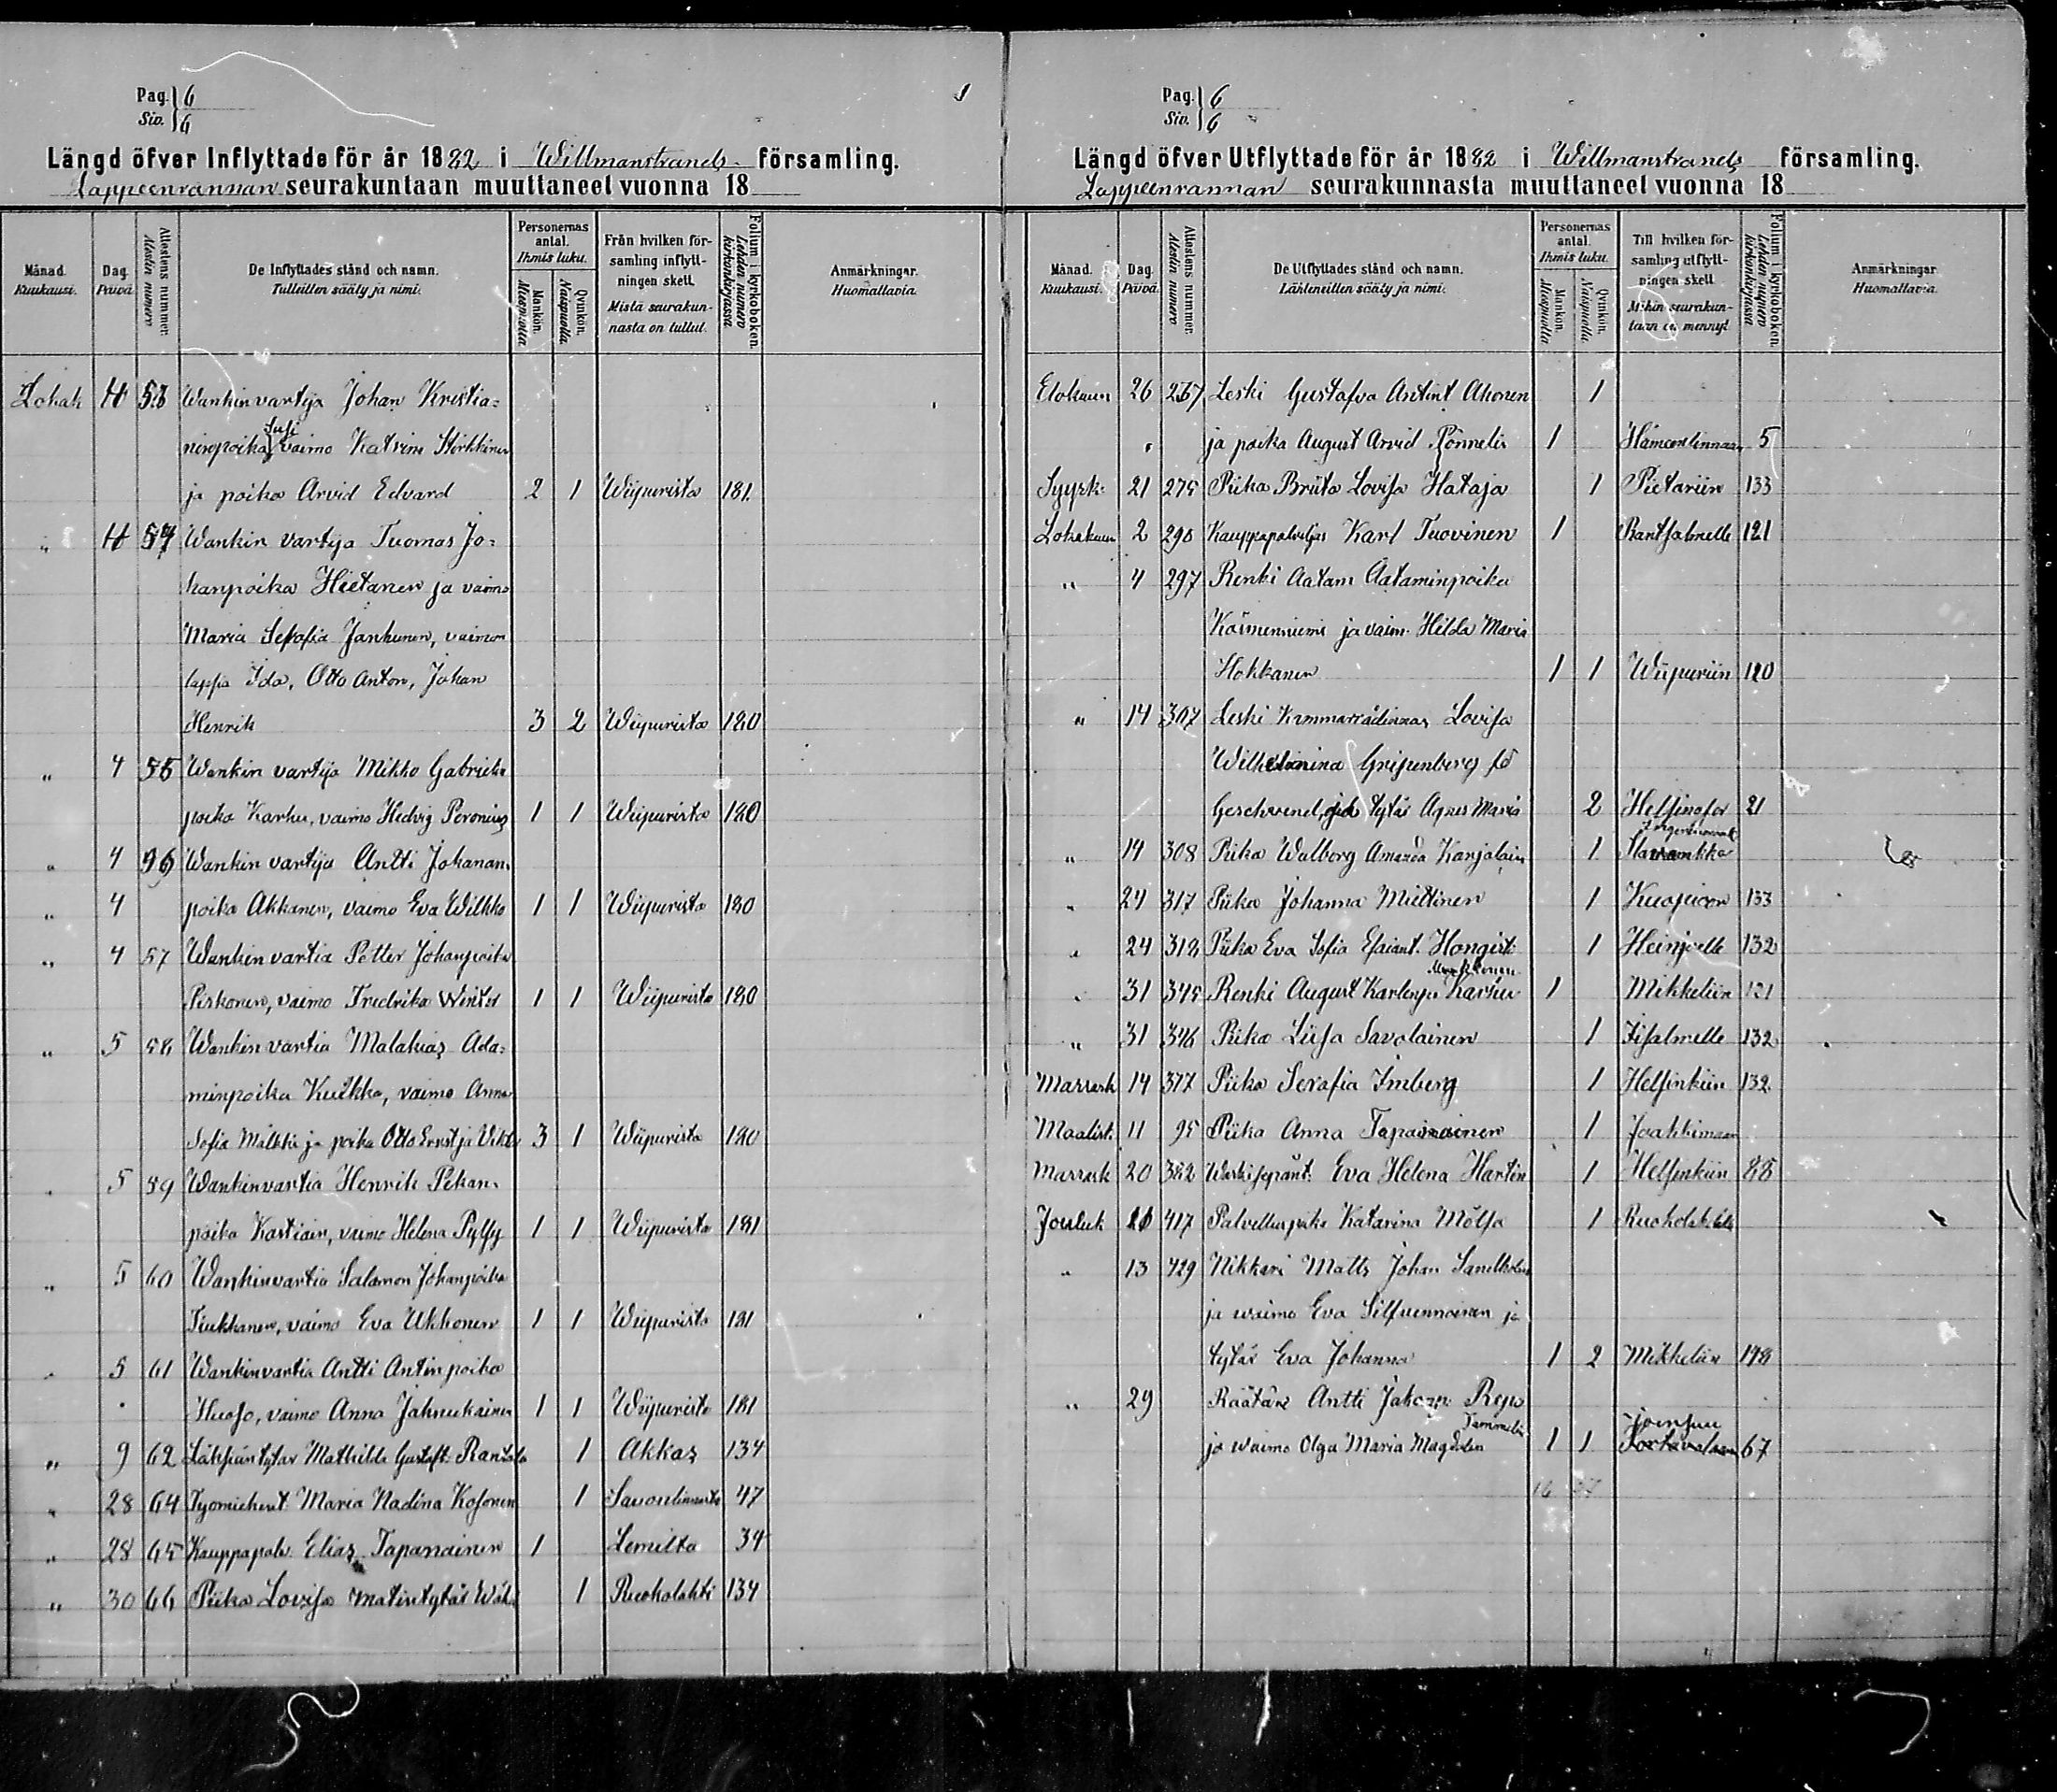 Pag. 6
Siv. 6
Längd öfver Inflyttade för år 1882 i Willmanstrands församling.
Lappeenrannan seurakuntaan muuttaneet vuonna 18
Månad. Kuukausi. Dag. Päivä. Attestens nummer. Atestin numero De Inflyttades stånd och namn. Tulleitten sääty ja nimi. Personernas antal. Ihmis luku. Mankön. Miespuolia. Qvinkön. Naispuolia. Från hvilken församling inflyttningen skett. Mistä seurakunnasta on tullut. Folium i kyrkoboken. Lehden numero kirkonkirjassa. Anmärkningar. Huomattavia.
Lokak 4 53 Wankinvartija Johan Kristia=
ninpoika Susi vaimo Katrina
ja poika Arvid Edvard 2 1 Wiipurista 181
" 4 54 Wankin vartija Tuomas Jo=
hanpoika Hietanen ja vaimo
Maria Serafia Janhunen, vaimon
lapsia Ida, Otto Anton, Johan
Henrik 3 2 Wiipurista 180
" 4 55 Wankin vartija Mikko Gabrielin
poika Karhu, vaimo Hedvig Peronius 1 1 Wiipurista 180
" 4 56 Wankin vartija Antti Johanan
" 4 poika Akkanen, vaimo Eva Wilkko 1 1 Wiipurista 180
" 4 57 Wankin vartia Petter Johanpoika
Piskonen, vaimo Fredrika Winter 1 1 Wiipurista 180
" 5 58 Wankin vartia Malakias Ada=
minpoika Kuikka, vaimo Anna
Sofia Mälkki ja poika Otto Ernst ja Viktor 3 1 Wiipurista 180
" 5 59 Wankinvartia Henrik Pekan
poika Kastiain, vaimo Helena Pylsy 1 1 Wiipurista 181
" 5 60 Wankinvartia Salamon Johanpoika
Tiukkanen, vaimo Eva Ukkonen 1 1 Wiipurista 181
" 5 61 Wankinvartia Antti Antinpoika
Huoso, vaimo Anna Jahnukainen 1 1 Wiipurista 181
" 9 62 Mathilda Gustafs Rantala 1 Akkas 134
" 28 64 Työmiehent. Maria Nadina Kosonen 1 Savonlinnasta 47
" 28 65 Kauppapalv. Elias Tapanainen 1 Lemilta 34
" 30 66 Piika Lovisa Matintytär 1 Ruokolahti 134
Pag. 6
Siv. 6
Längd öfver Utflyttade för år 1882 i Willmanstrands församling.
Lappeenrannan seurakunnasta muuttaneet vuonna 18
Månad. Kuukausi. Dag. Päivä. Attestens nummer. Atestin numero De Utflyttades stånd och namn. Lähteneitten sääty ja nimi. Personernas antal. Ihmis luku. Mankön. Miespuolia. Qvinkön. Naispuolia. Till hvilken församling utflyttningen skett. Mihin seurakuntaan on mennyt. Folium i kyrkoboken. Lehden numero kirkonkirjassa. Anmärkningar. Huomattavia.
Elokuun 26 267 Leski Gustafva Antint Ahonen 1
" ja poika August Arvid Rönnelis 1 Hämeenlinnaan 5
Syysk. 21 275 Piika Briita Lovisa Hataja 1 Pietariin 133
Lokakuun 2 290 Kauppapalvelijas Karl Tuovinen 1 Rantsalmelle 121
" 4 297 Renki Aatam Aataminpoika
Kärmenniemi ja vaim. Hilda Maria
Hokkanen 1 1 Wiipuriin 120
" 14 307 Leski Kammarrådinnan Lovisa
Wilhelmina Gripenberg fö
Geschwend, ja tytär Agnes Maria 2 Helsingfor 21
" 14 308 Piika Walborg Amanda Karjalain 1
" 24 317 Piika Johanna Miettinen 1 Kuopioon 133
" 24 318 Piika Eva Sofia Esaiant. Hongisto 1 Heinjoelle 132
" 31 345 Renki August Karlenp. Karhu 1 Mikkeliin 121
" 31 346 Piika Liisa Savolainen 1 Iisalmelle 132
Marrask 14 377 Piika Serafia Imberg 1 Helsinkiin 132
Maalisk. 11 95 Piika Anna Tapanainen 1 Jaakkimaan
Marrask 20 382 Eva Helena Hartin 1 Helsinkiin 88
Jouluk 16 417 Palvelus piika Katarina Mölsä 1 Ruokolahdelle
" 13 429 Nikkari Matts Johan Sandholm
ja waimo Eva Silfvennoinen ja
tytär Eva Johanna 1 2 Mikkeliin 148
" 29 Räätäri Antti Johanp. Repo
ja waimo Olga Maria Magdalen Tammelin 1 1 Joensuu 67
16 37